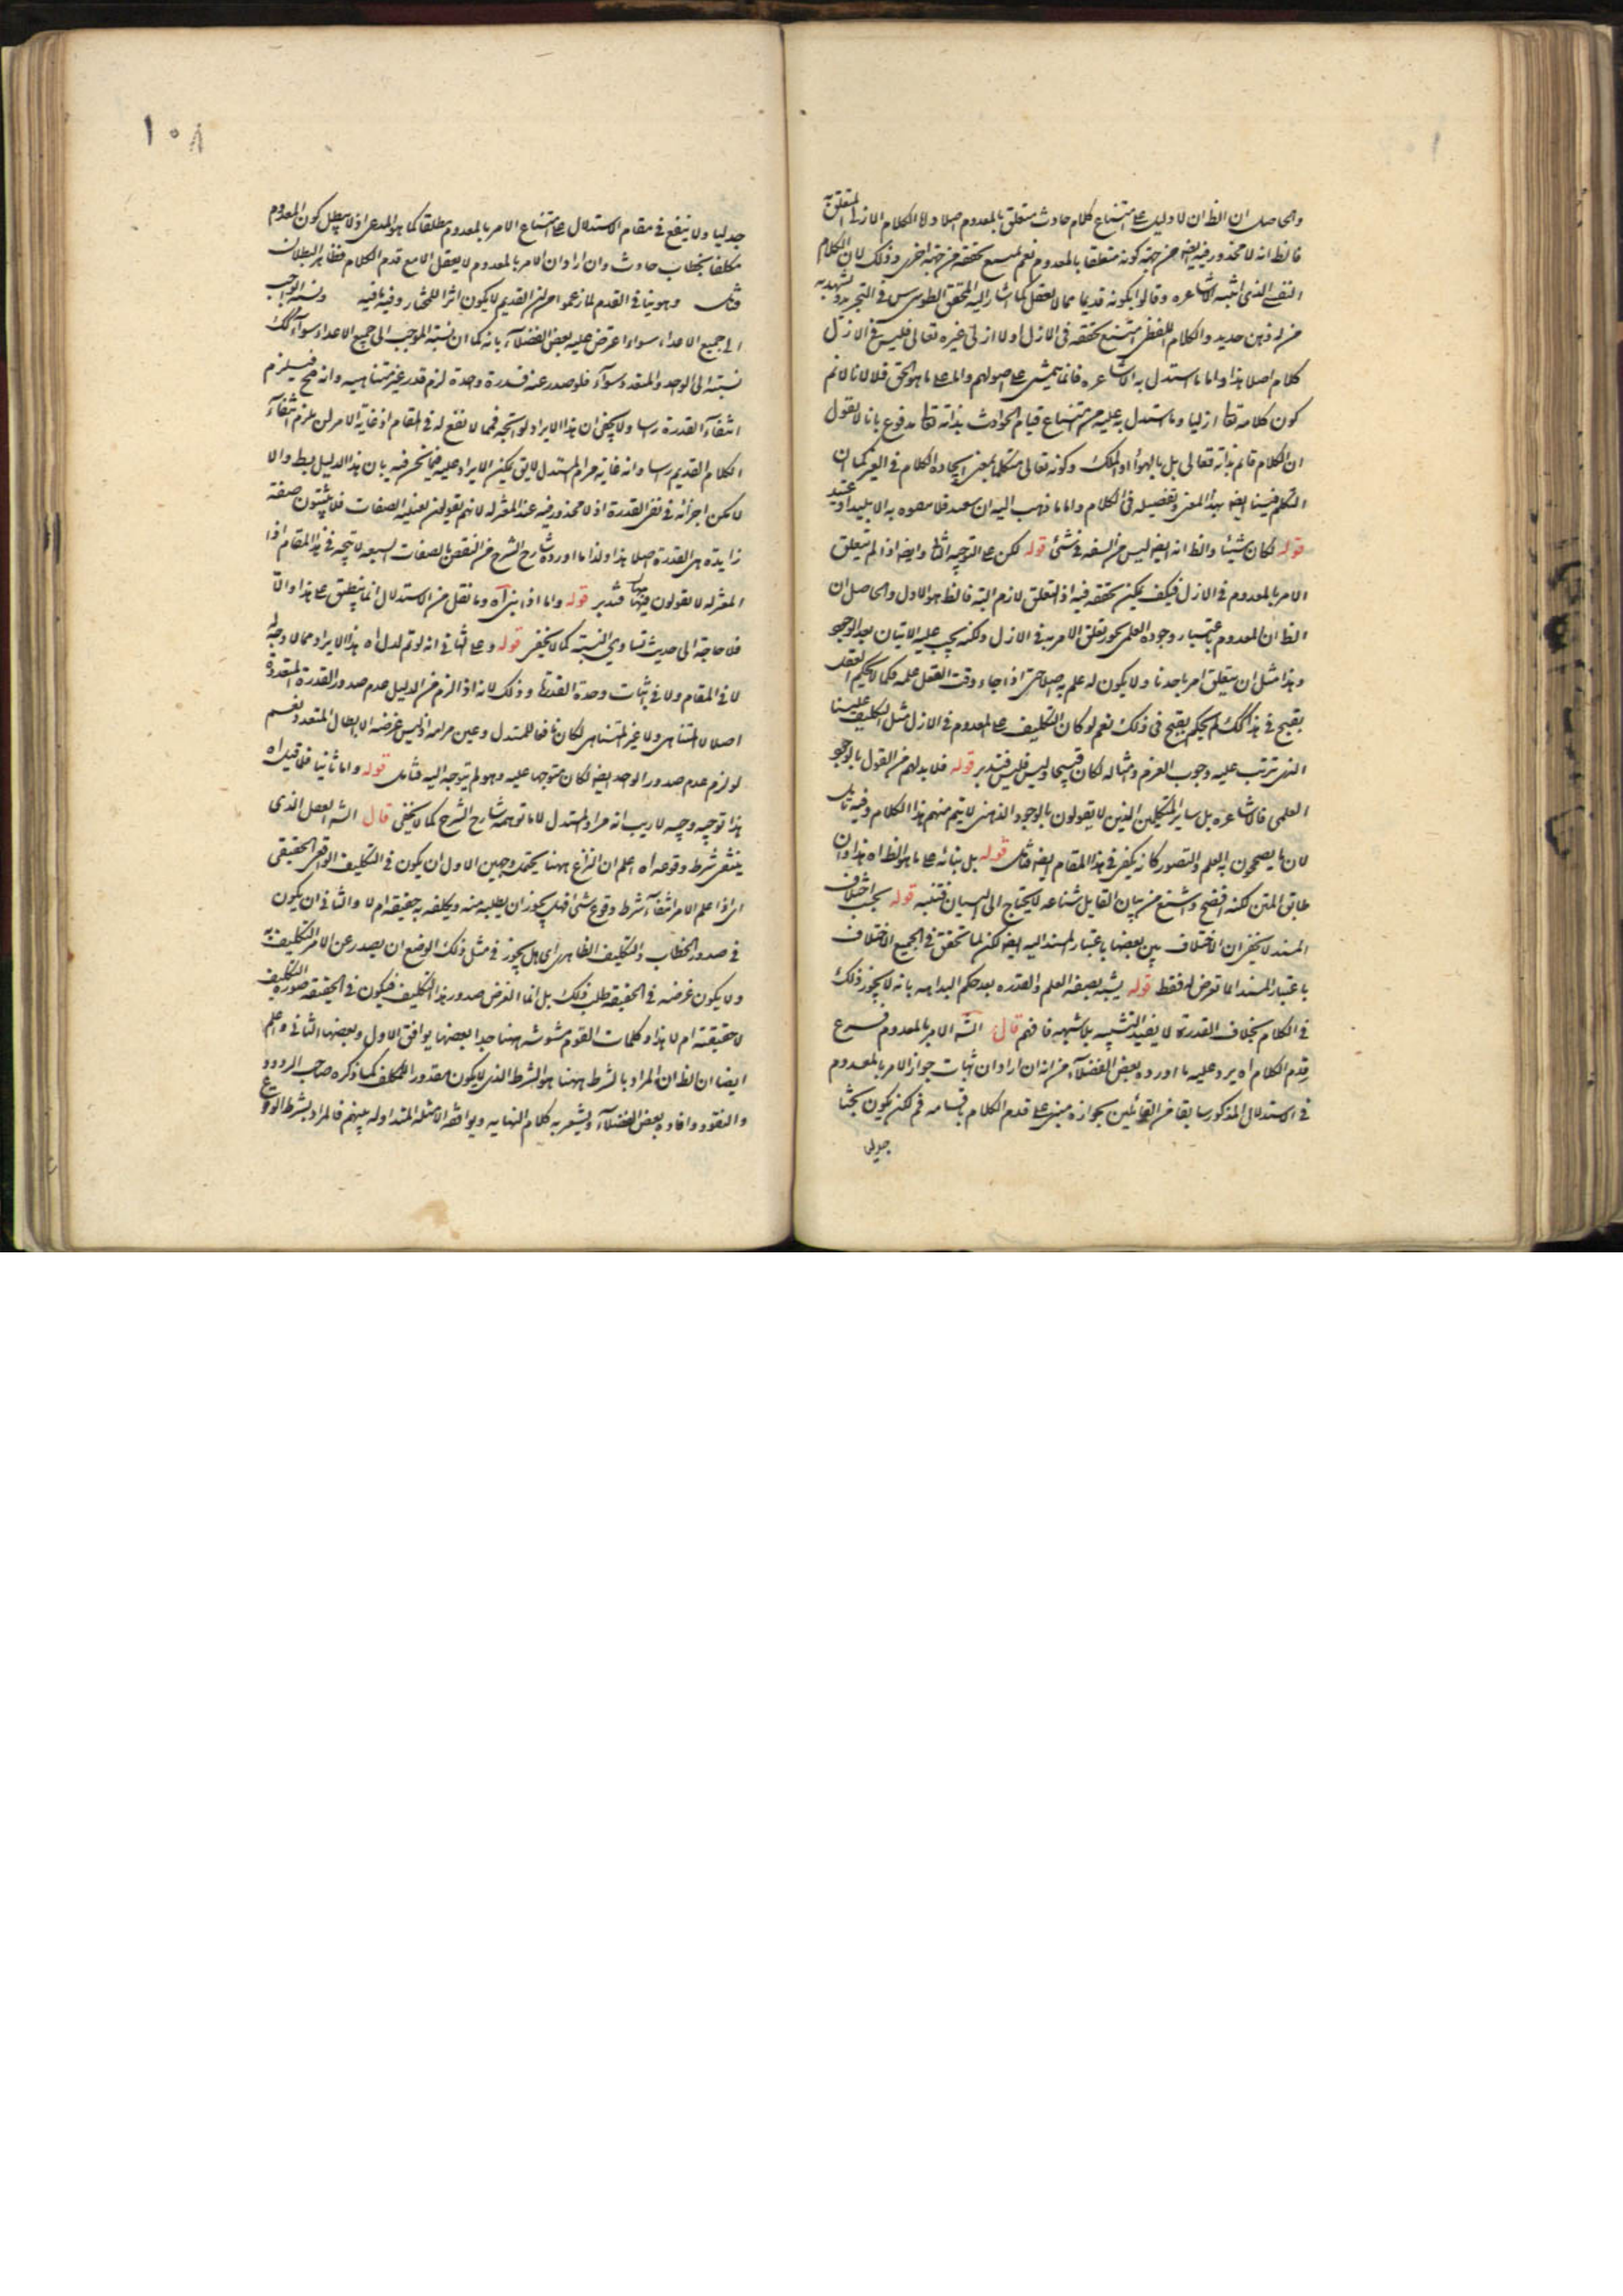 والحاصل ان الظ ان لا دليل على امتناع كلام حادث متعلق بالمعدوم اصلا ولا الكلام الازلى المتعلق به
فالظ انه لا محذور فيه ايضه من جهة كونه متعلقا بالمعدوم نعم يمتنع تحققه من جهة اخرى وذلك لان الكلام
النفسى الذى اثبته الاشاعره وقالوا بكونه قديما مما لا يعقل كما اشار اليه المحقق الطوسى س فى التجريد ويشهد به
من له ذهن حديد والكلام اللفظى امتنع تحققه فى الازل اولا ازلى غيره تعالى فليس فى الازل
كلام اصلا هذا واما ما استدل به الاشاعره فانما يتمشى على اصولهم واما على ما هو الحق فلا لانا لا نم
كون كلامه تعا ازليا وما استدل به عليه من امتناع قيام الحوادث بذاته تعا مدفوع بانا لا نقول
ان الكلام قائم بذاته تعالى بل بالهواء او الملك وكونه تعالى متكلما بمعنى ايجاده الكلام فى الغير كما ان
التكلم فينا ايضه بهذا المعنى وتفصيله فى الكلام واما ما ذهب اليه ابن سعيد فلا يتفوه به الا بليد او عنيد
قوله لكان شيئا والظ انه ايضه ليس من السفه فى شئ قوله لكن على التوجيه الثا وايضه اذا لم يتعلق
الامر بالمعدوم فى الازل فكيف يمكن تحققه فيه اذ التعلق لازم البتة فالظ هو الاول والحاصل ان
الظ ان المعدوم باعتبار وجوده العلمى يجوز تعلق الامر به فى الازل ولكنه يجب عليه الاتيان بعد الوجود
وهذا مثل ان يتعلق امر باحدنا ولا يكون له علم به اصلا حتى اذا جاء وقت الفعل علمه فكما لا يحكم العقل
بقبح فى هذا كك لم يحكم بقبح فى ذلك نعم لو كان التكليف على المعدوم فى الازل مثل التكليف علينا
الذى يترتب عليه وجوب العزم وامثاله لكان قبيحا وليس فليس فتدبر قوله فلا بد لهم من القول بالوجود
العلمى فالاشاعره بل ساير المتكلمين الذين لا يقولون بالوجود الذهنى لا يتم منهم هذا الكلام وفيه تامل
لان ما يصححون به العلم والتصور كانه يكفى فى هذا المقام ايضه فتامل قوله بل بنائه على ما هو الظ اه هذا وان
طابق المتن لكنه افضح واشنع من بيان القايل شناعه لا يحتاج الى البيان فتنبه قوله بحسب اختلاف
المسند لا يخفى ان الاختلاف بين بعضها باعتبار المسند اليه ايضه لكن لما تحقق فى الجميع الاختلاف
باعتبار المسند اما تعرض له فقط قوله يشبه بصفة العلم والقدره بعد حكم البداهه بانه لا يجوز ذلك
فى الكلام بخلاف القدرة لا يفيد التشبيه بلا شبهه فافهم قال الش الامر بالمعدوم فرع
قدم الكلام اه يرد عليه ما اورده بعض الفضلاء من انه ان اراد ان اثبات جواز الامر بالمعدوم
فى الاستدلال المذكور سابقا من القائلين بجوازه مبنى على قدم الكلام باقسامه فم لكن يكون بحثا
جدلى
١٠٨
جدليا ولا ينفع فى مقام الاستدلال على امتناع الامر بالمعدوم مطلقا كما هو المدعى اذ لا يبطل كون المعدوم
مكلفا بخطاب حادث وان اراد ان الامر بالمعدوم لا يعقل الا مع قدم الكلام فظاهر البطلان
فتامل وهو ينافى القدم لما زعموا من ان القديم لا يكون اثرا للمختار وفيه ما فيه ونسبة الواجب
الى جميع الاعداد سواء اعترض عليه بعض الفضلاء بانه كما ان نسبة الموجب الى جميع الاعداد سواء كك
نسبته الى الواحد والمتعدد سواء فلو صدر عنه قدرة واحدة لزم قدر غير متناهيه وانه مح فيلزم
انتفاء القدرة رسا ولا يخفى ان هذا الايراد لو اتجه فمما لا نفع له فى المقام اذ غاية الامر ان يلزم انتفاء
الكلام القديم رسا وانه غاية مرام المستدل لا يق يمكن الايراد عليه فيما نحن فيه بان هذا الدليل بط والا
لامكن اجرائه فى نفى القدرة اذ لا محذور فيه عند المعتزله لانهم يقولون بعينيه الصفات فلا يثبتون صفة
زايدة هى القدرة اصلا هذا ولذا ما اورده شارح الشرح من النقض بالصفات السبعه لا يتجه فى هذا المقام اذ
المعتزله لا يقولون بها فتدبر قوله واما اذا بنى اه وما نقل من الاستدلال انما ينطبق على هذا والا
فلا حاجة الى حديث تساوى النسبة كما لا يخفى قوله وعلى الثانى انه لو تم لدل اه هذا الايراد مما لا وجه له
لا فى المقام ولا فى اثبات وحدة القدرة وذلك لانه اذ الزم من الدليل عدم صدور القدرة المتعددة
اصلا لا المتناهى ولا غير المتناهى لكان نافعا للمستدل وعين مرامه اذ ليس غرضه الا ابطال المتعدد نعم
لو لزم عدم صدور الواحد ايضه لكان متوجها عليه وهو لم يتوجه اليه فتامل قوله واما ثانيا فلما قيل اه
هذا توجيه وجيه لا ريب انه مراد المستدل لا ما توهمه شارح الشرح كما لا يخفى قال الش الفعل الذى
ينتفى شرط وقوعه اه اعلم ان النزاع ههنا يحتمل وجهين الاول ان يكون فى التكليف الواقعى الحقيقى
اى اذا علم الامر انتفاء شرط وقوع شئ فهل يجوز ان يطلبه منه ويكلفه به حقيقه ام لا والثانى ان يكون
فى صدور الخطاب والتكليف الظاهرى اى هل يجوز فى مثل ذلك الوضع ان يصدر عن الامر التكليف به
ولا يكون غرضه فى الحقيقه طلب ذلك بل انما الغرض صدور هذا التكليف فيكون فى الحقيقه صورة التكليف
لا حقيقته ام لا هذا وكلمات القوم مشوشه ههنا جدا بعضها يوافق الاول وبعضها الثانى واعلم
ايضا ان الظ ان المراد بالشرط ههنا هو الشرط الذى لا يكون مقدورا للمكلف كما ذكره صاحب الردود
والنقود وافاده بعض الفضلاء ويشعر به كلام النهايه ويوافقه الامثله المتداوله بينهم فالمراد بشرط الوقوع